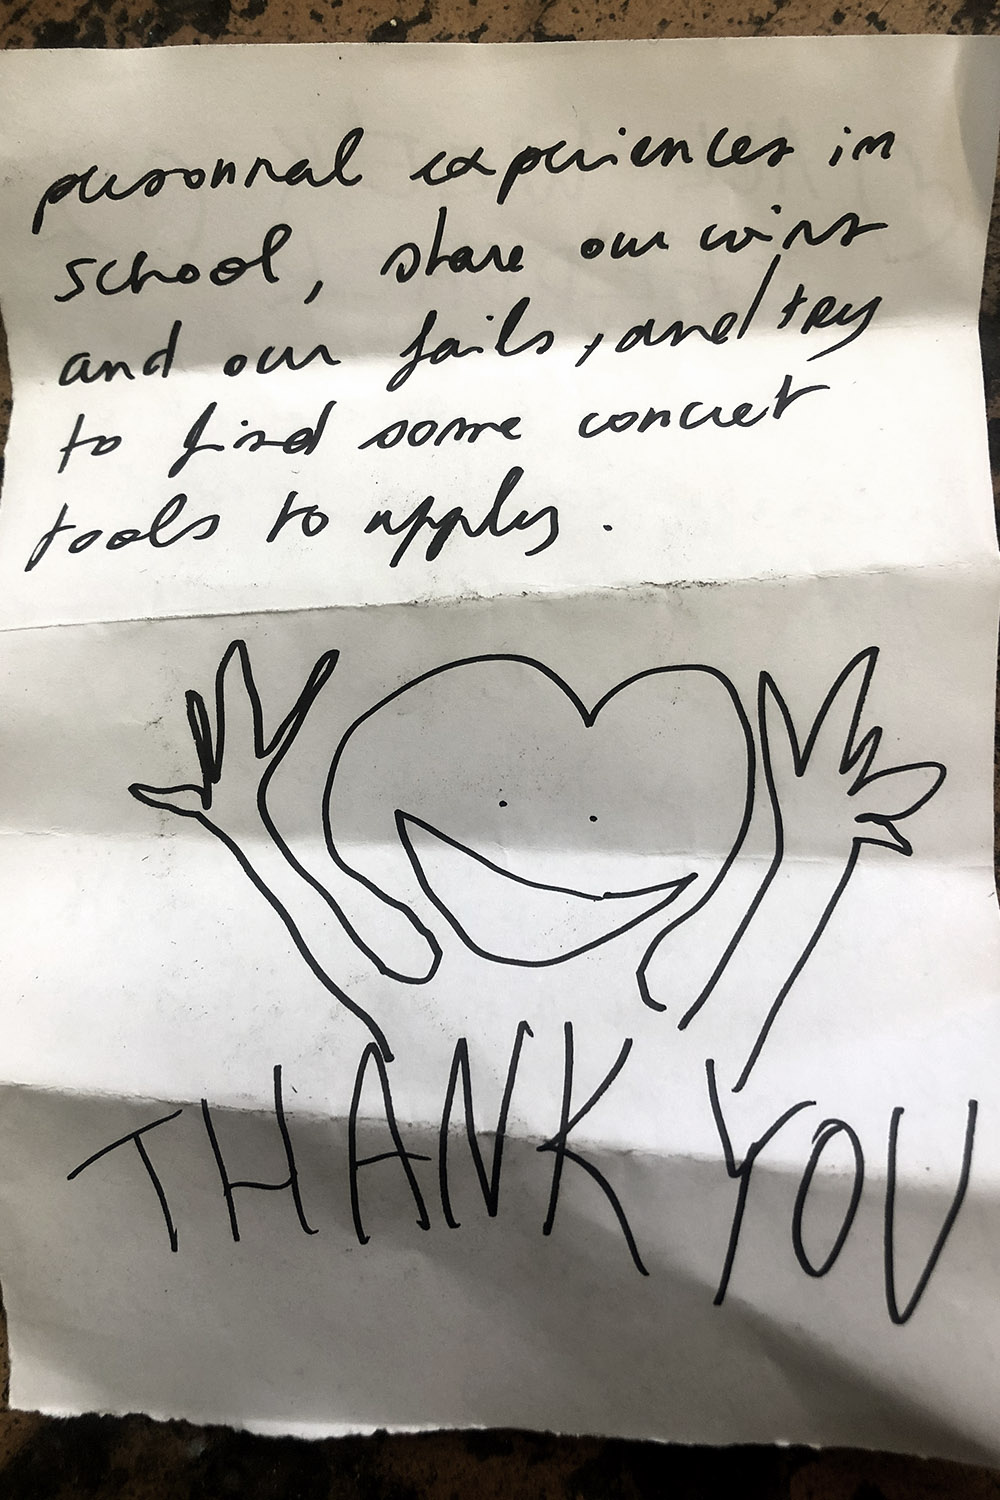 personnal experiences in
school, share our wins
and our fails, and/try
to find some concret
tools to apply.
THANK YOU